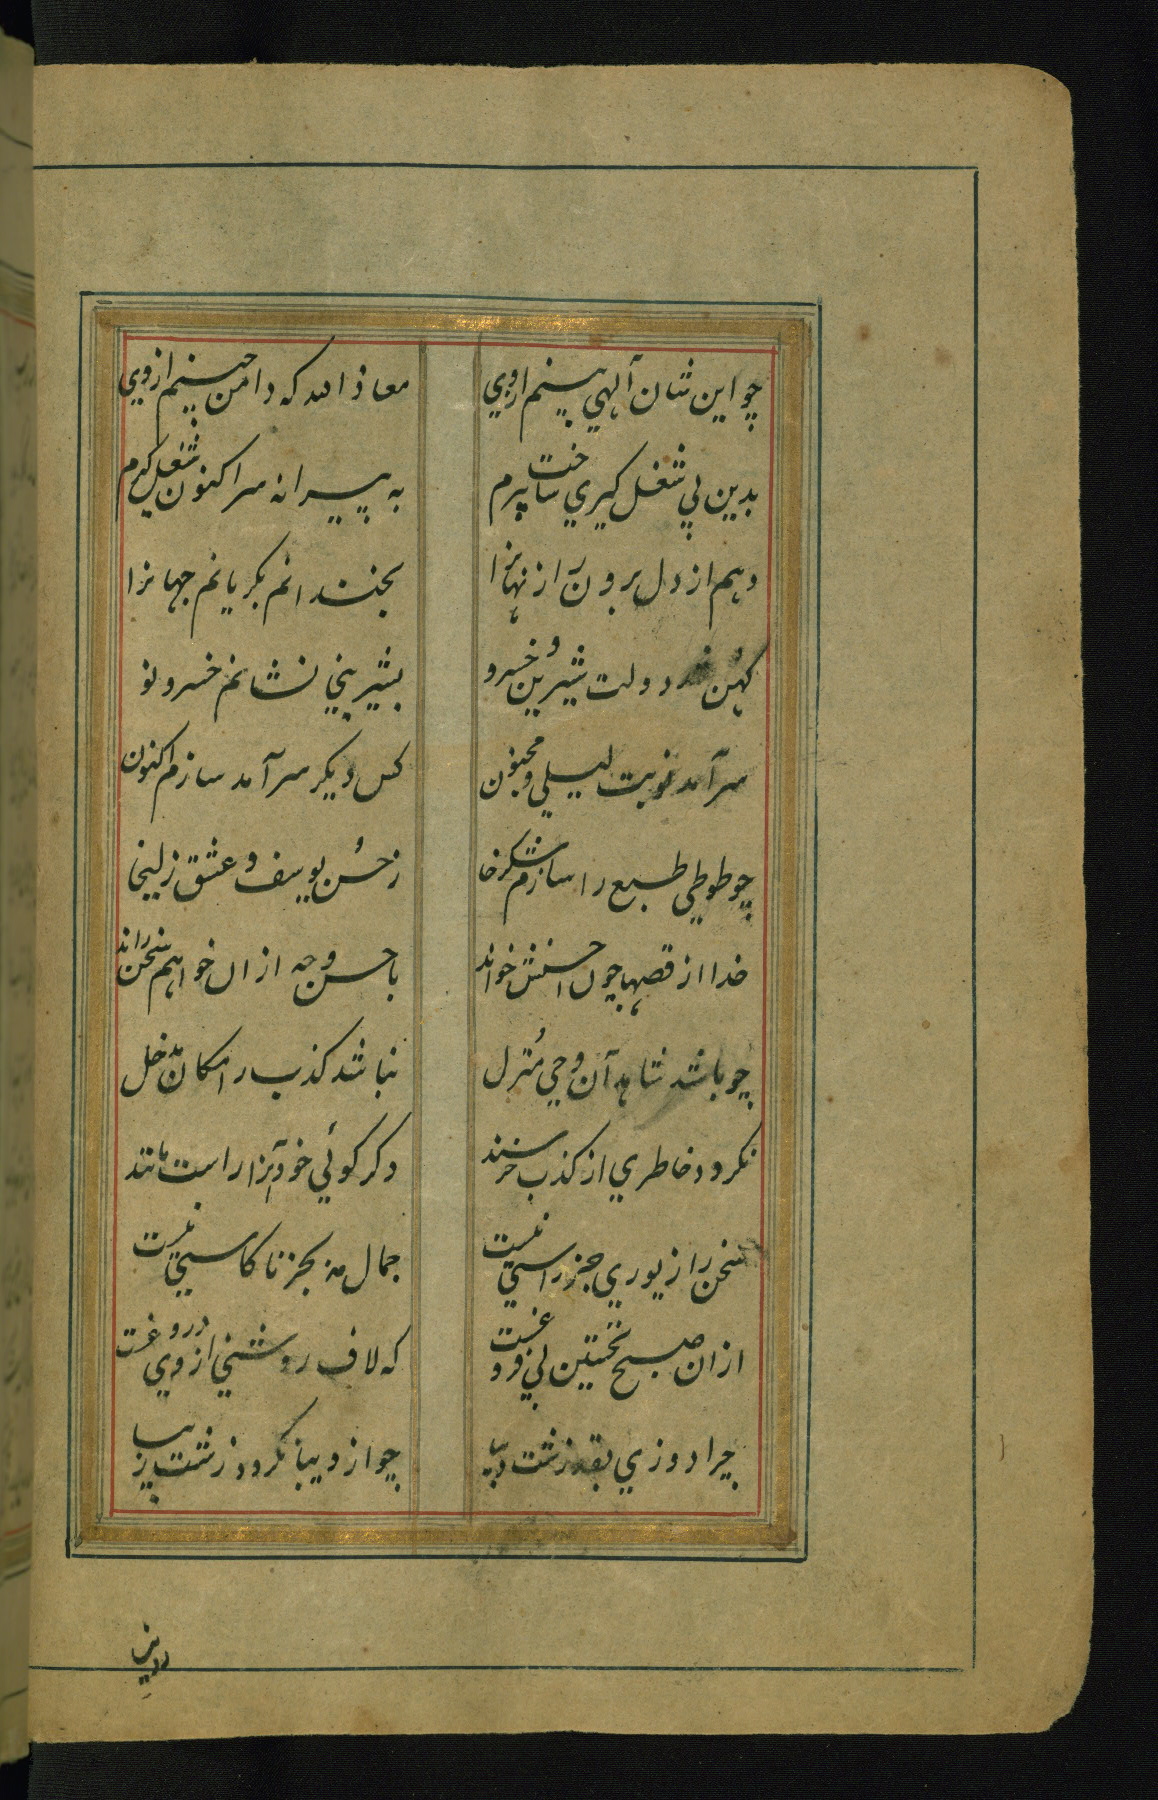 چو این شان آلهی بینم ازوی معاذ الله که دامن چینم ازوی
بدین بی شغل کیری ساخت پیرم به پیرانه سر اکنون شغل کیرم
دهم از دل برون راز نهانرا بخندانم بکریانم جهانرا
کهن شد دولت شیرین و خسرو بشیرینی نشانم خسرو نو
سرآمد نوبت لیلی و مجنون کس دیکر سرآمد سازم اکنون
چو طوطی طبع را سازم شکرخا ز حُسن یوسف و عشق زلیخا
خدا از قصهها چون احسنش خواند باحسن وجه ازان خواهم سخن راند
چو باشد شاهد آن وحی مُنزل نباشد کذب را امکان مدخل
نکردد خاطری از کذب خرسند وکر کوئی خود آنرا راست مانند
سخن را زیوری جز راستی نیست جمال مه بجز ناکاستی نیست
ازان صبح نخستین بی فروغست که لاف روشنی از وی دروغست
چرا دوزی بقد زشت دیبا چو از دیبا نکردد زشت زیبا